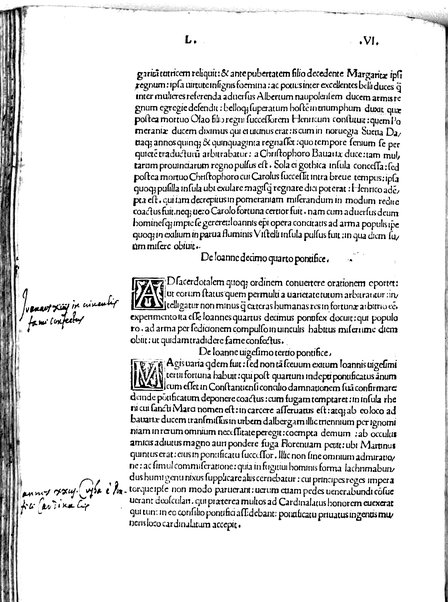 L. .VI.
garitā tutricem reliquit: & ante pubertatem filio decedente Margaritæ ipsi
regnum: ipsa uirtute insignis fœmina: ac potius inter excellentes belli duces q̄
inter mulieres referenda aduersus Albertum naupolensem ducem armis re
gnum egregie defendit: belloq; superatum hostē in triumphum duxit quæ
postea mortuo Olao filio regni successorem Henricum constituit: quem Po
meraniæ ducem diximus qui et uictus erat: is cum in noruegia Suetia Da,
tiaq; annos quinq; & quinquaginta regnasset: quo tempore senium se per
quietē traducturū arbitrabatur: a Christophoro Bauariæ duce: tam mul,
tarum prouinciarum regno pulsus est. Sola ei gothica insula concessa: sed
postea mortuo Christophoro cui Carolus successit intra breue tempus: ipsa
quoq; pusilla insula ubi exulare magisq; regnare dici poterat: Henrico adē,
pta est. qui iam decrepitus in pomeraniam miserandum in modum redire
coactus fuit. neq; uero Carolo fortuna certior fuit. nam cum aduersus deum
hominesq; impie se gereret: Ioannis epi opera concitatis ad arma populis ipse
quoq; in exilium in parua fluminis Vistelli insula pulsus fuit: in qua diem su,
um misere obiuit.
De Ioanne decimo quarto pontifice.
AD sacerdotalem quoq; ordinem conuertere orationem oportet:
ut eorum status quem permulti a uarietate tutum arbitrantur: in
telligatur non minus q̄ cæteras humanas res in fortunæ arbitrio eē
experimento ita esse Ioannes quartus decimus pontifex docuit: qui popu
ro. ad arma per seditionem compulso in uinculis habitus miserrime diem
obiit: ut quidam tradidere fame confectus.
De Ioanne uigesimo tertio pontifice.
MAgis uaria qdem fuit: sed non tā seuum exitum Ioannis uigesimi
tertii fortuna habuit: qui post quartum indepti pontificatus ānum
cum esset in Constantiensi concilio damnationem suā confirmare:
deinde pōtificatum deponere coactus: cum fugam temptaret: in insula rhe
ni cui sancti Marci nomen est: in carcere asseruatus est: atq; ab eo loco ad
bauariæ ducem transmissus in urbem dalbergam illic triennium per ignomi
niam in rerum omnium necessitate peregit: coempta demum: ab occultis
amicis adiutus magno auri pondere fuga Florentiam petiit: ubi Martinus
quintus erat: eius in pontificatu successor. Illic non sine omnium admiratio
ne: ac simul commiseratione: quia in fugitiui hominis forma lachrimabun,
dus humi genu nixus supplicare aliis cernebatur: cui principes reges impera
torque ipse non modo paruerant: uerum etiam pedes uenerabundi cōsue
uerant deosculari. qui præterea multos ad Cardinalatus honorem euexerat
qui tun: in eo consilio pontifici assidebant: pontificatu priuatus ingentis mu
neris loco cardinalatum accepit.
Ioannes xiiij in uinculis
fame confectus